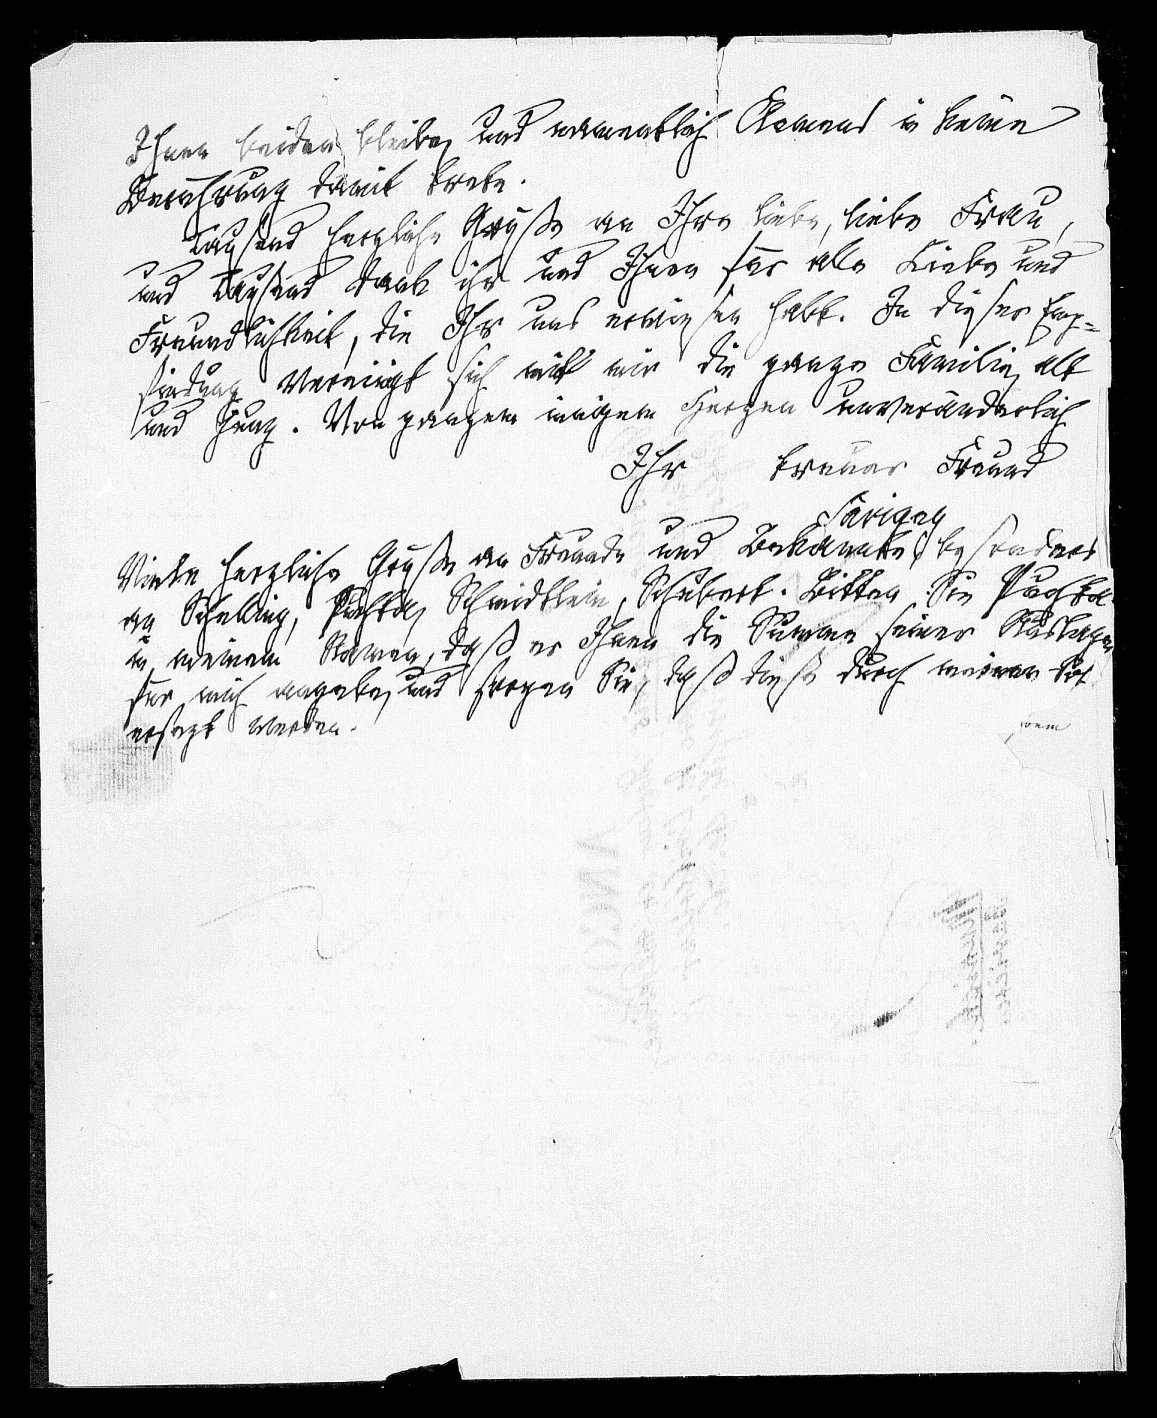 Ihnen beiden bleibe, und namentlich Clemens in keine
Berührung damit trete.
Tausend herzliche Grüße an Ihre liebe, liebe Frau,
und Tausend Dank ihr und Ihnen für alle Liebe und
Freundlichkeit, die Ihr uns erwiesen habt. In dieser Emp-
findung vereinigt sich mit mir die ganze Familie, alt
und jung. Von ganzem innigem Herzen unveränderlich
Ihr treuer Freund
Savigny
Viele herzliche Grüße an Freunde und Bekannte, besonders
an Schelling, Puchta, Schmidtlein, Schubert. Bitten Sie Puchta
in meinem Namen, daß er Ihnen die Summe seiner Auslagen
für mich angebe, und sorgen Sie, daß diese durch meinen
ersezt werden.